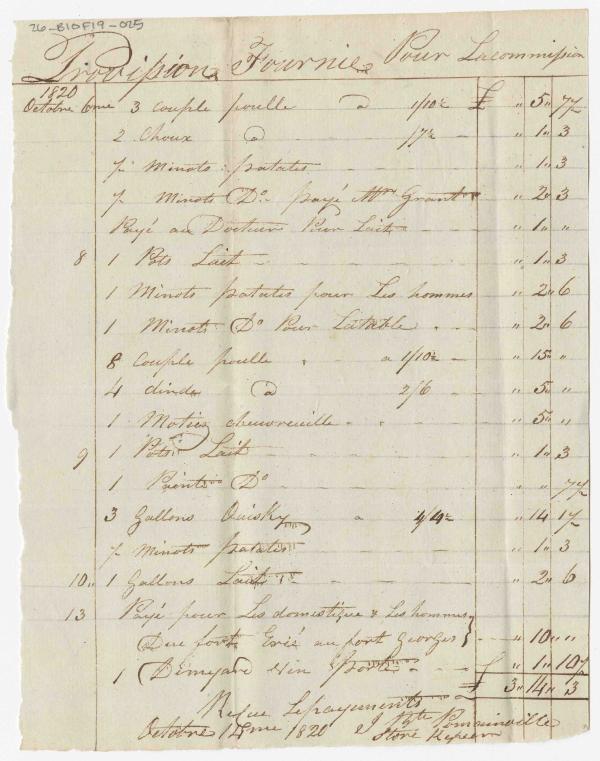 26-B10F19-025
Provision Fournie Pour Lacommission
1820
Octobre 6me 3 couple poulle a 1/10½ £ " 5" 7½
2 Choux a /7½ " 1" 3
½ Minots patates " 1" 3
½ Minots Do payé Mr Grant " 2" 3
Payé au Docteur Pour Lait " 1" "
8 1 Pots Lait " 1" 3
1 Minots patates pour Les hommes " 2" 6
1 Minots Do Pour Latable " 2" 6
8 Couple poulle a 1/10½ " 15" "
4 dinde a 2/6 " 5" "
1 Motier chuvreuille " 5" "
9 1 Pots Lait " 1" 3
1 Painte Do " " 7½
3 Gallons Ouisky a 4/4½ " 14 1½
½ Minots patates " 1" 3
10" 1 Gallons Lait " 2" 6
13 Payé pour Les domestique & Les hommes
Du fort Erié au fort Georges } " 10" "
1 Demyard vin porte " 1" 10½
£ 3" 14" 3
Reçue Lepayements
Octobre 14me 1820 J Bte Pominville
Store Kepeer